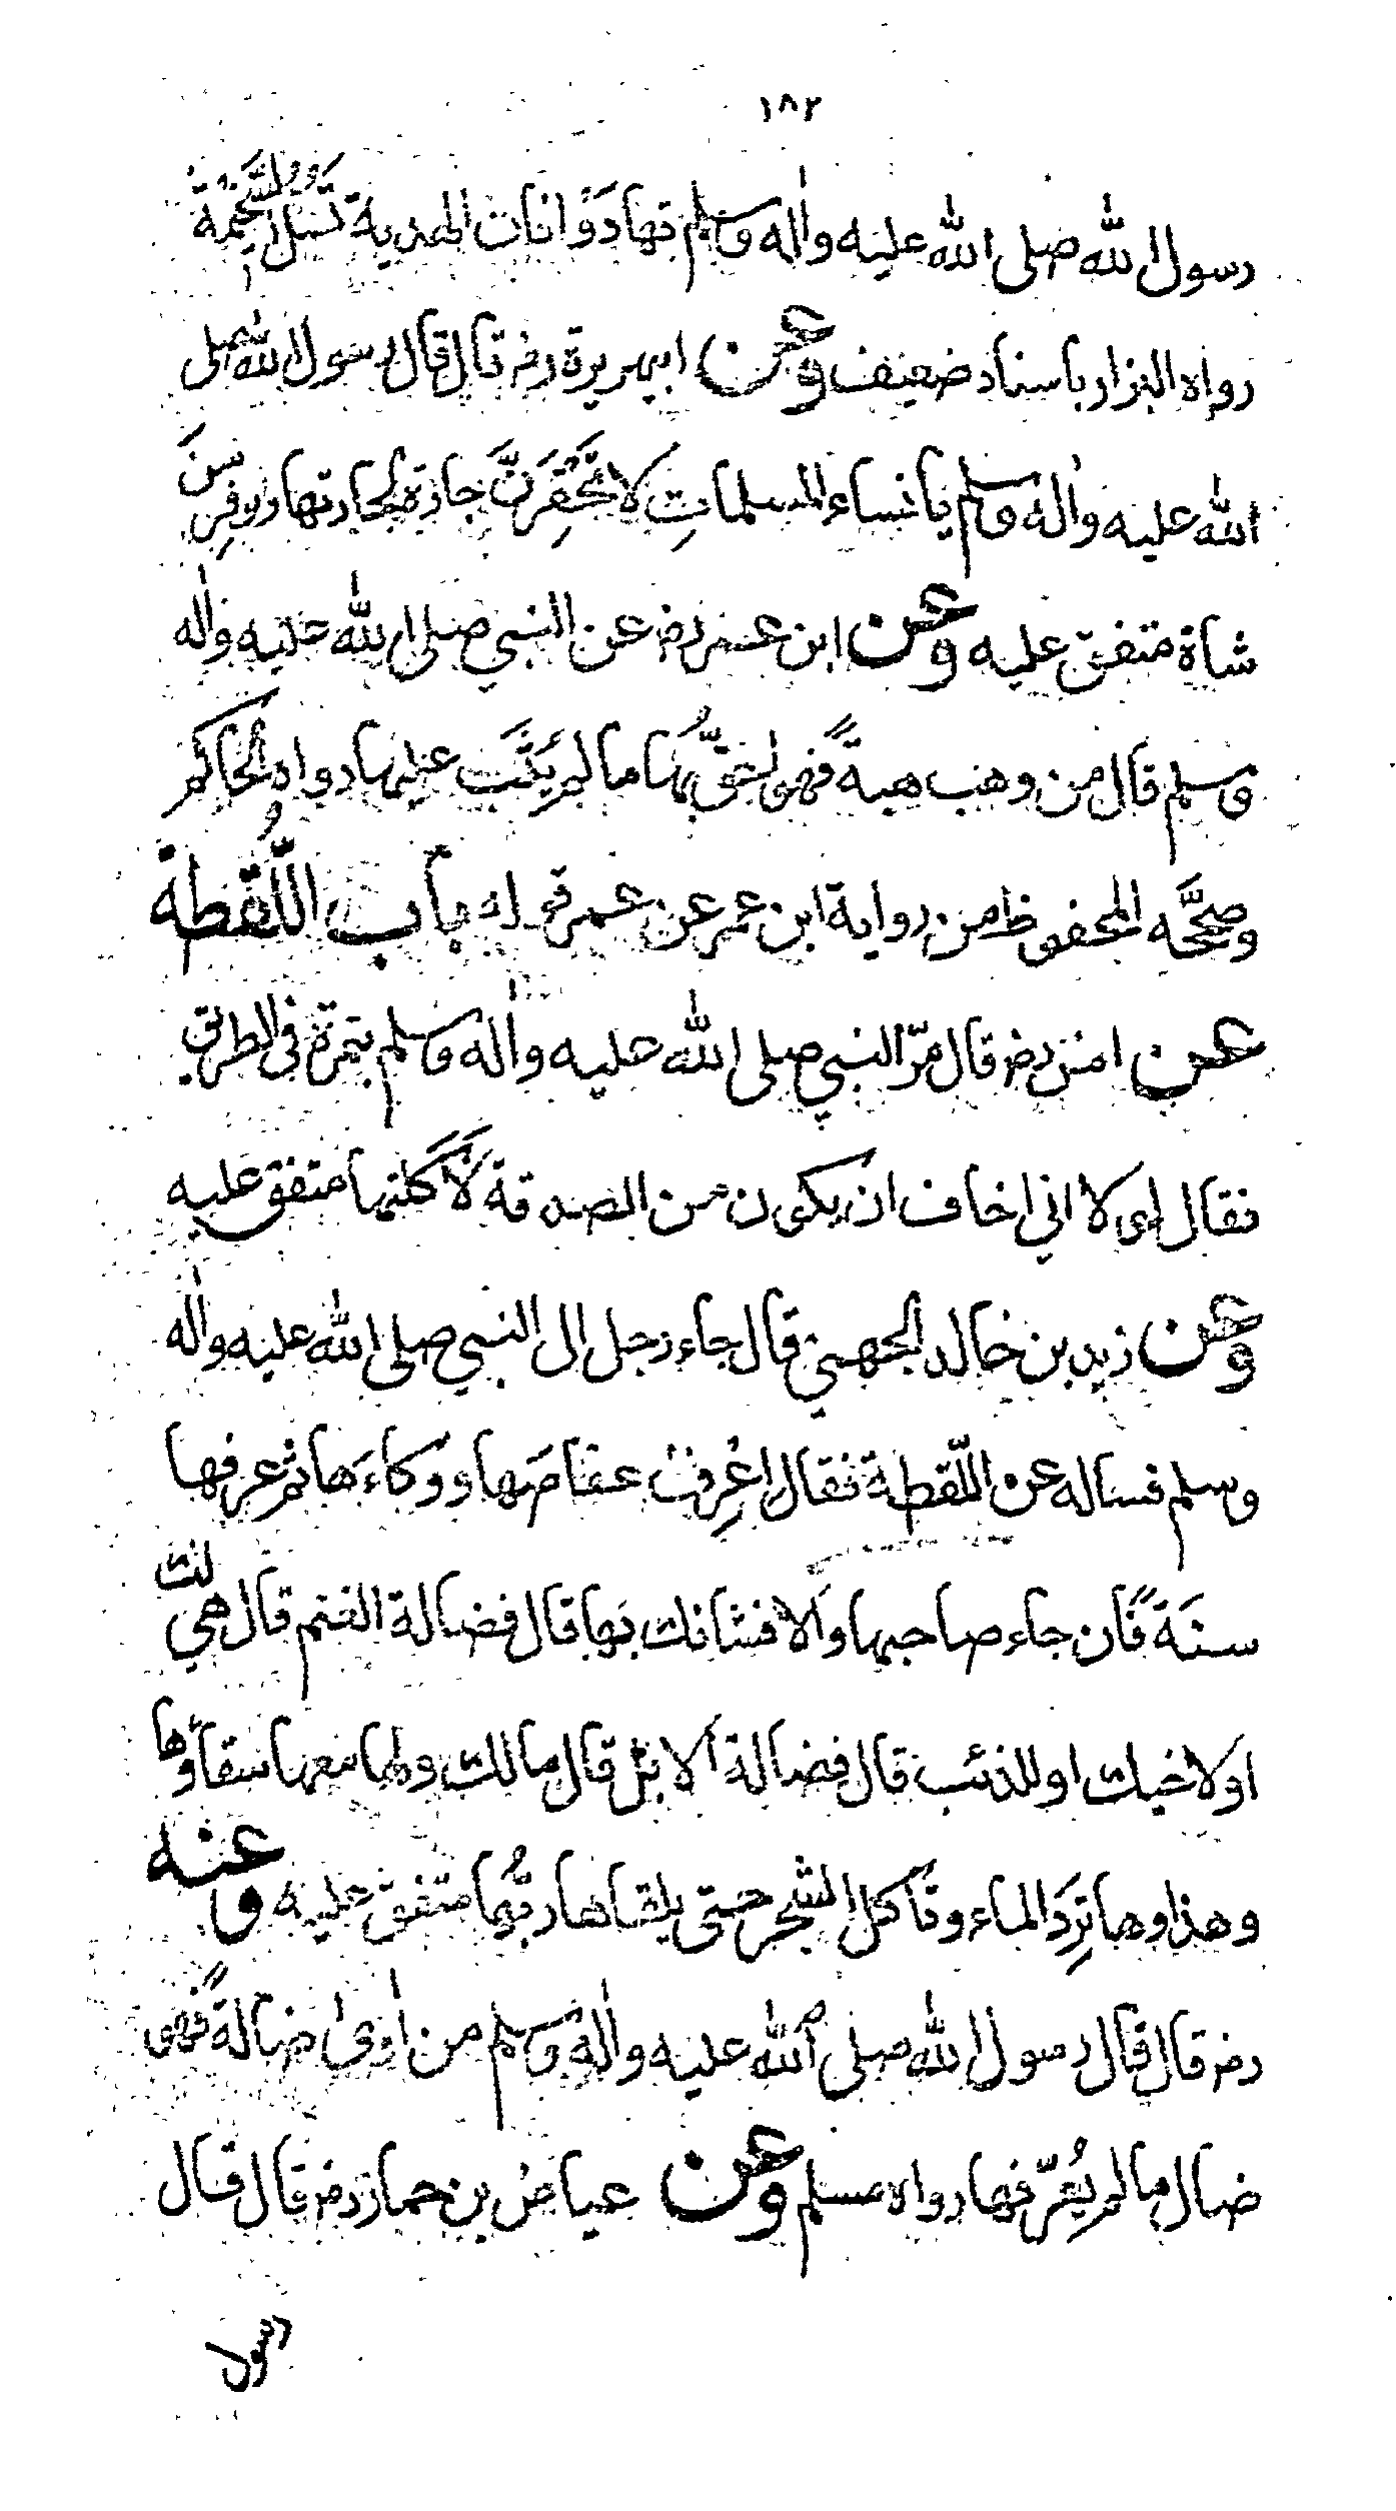 ١٨٢
رسول الله صلى الله عليه واٰله وسلم تهادَوْا فان الهدية تَسُلُّ السَّخِيْمَةَ
رواه البزار باسناد ضعيف وعن ابيهريرة رضـ قال قال رسول الله صلى
الله عليه واٰله وسلم يا نساء المسلماتِ لا تَحْقِرَنَّ جارة لجارتها ولو فِرْسَنَ
شاة متفق عليه وعن ابن عمر رضـ عن النبي صلى الله عليه واٰله
وسلم قال من وهب هبةً فهو احقُّ بها ما لم يُثَبْ عليها رواه الحاكم
وصحَّحه المحفوظ من رواية ابن عمر عن عمر قوله باب اللُّقطة
عن انس رضـ قال مرّ النبي صلى الله عليه واٰله وسلم بتمرة في الطريق
فقال لولا اني اخاف ان يكون من الصدقة لَاَكلتها متفق عليه
وعن زيد بن خالد الجهني قال جاء رجل الى النبي صلى الله عليه واٰله
وسلم فساله عن اللّقطة فقال اعْرِفْ عفاصَها ووكاءَها ثم عرفها
سنَة فَان جاء صاحبها واَلا فشانك بها قال فضالة الغنم قال هي لك
او لاخيك او للذئب قال فضالة الابل قال مالك ولها معها سقاؤها
وهذاوها ترِدَ الماء وتأكل الشجر حتى يلقاها ربُّها متفق عليه وعنه
رضـ قال قال رسول الله صلى الله عليه واٰله وسلم من اٰوىٰ ضالةً فهو
ضال ما لم يُعرّفها رواه مسلم وعن عياض بن حمار رضـ قال قال
رسول